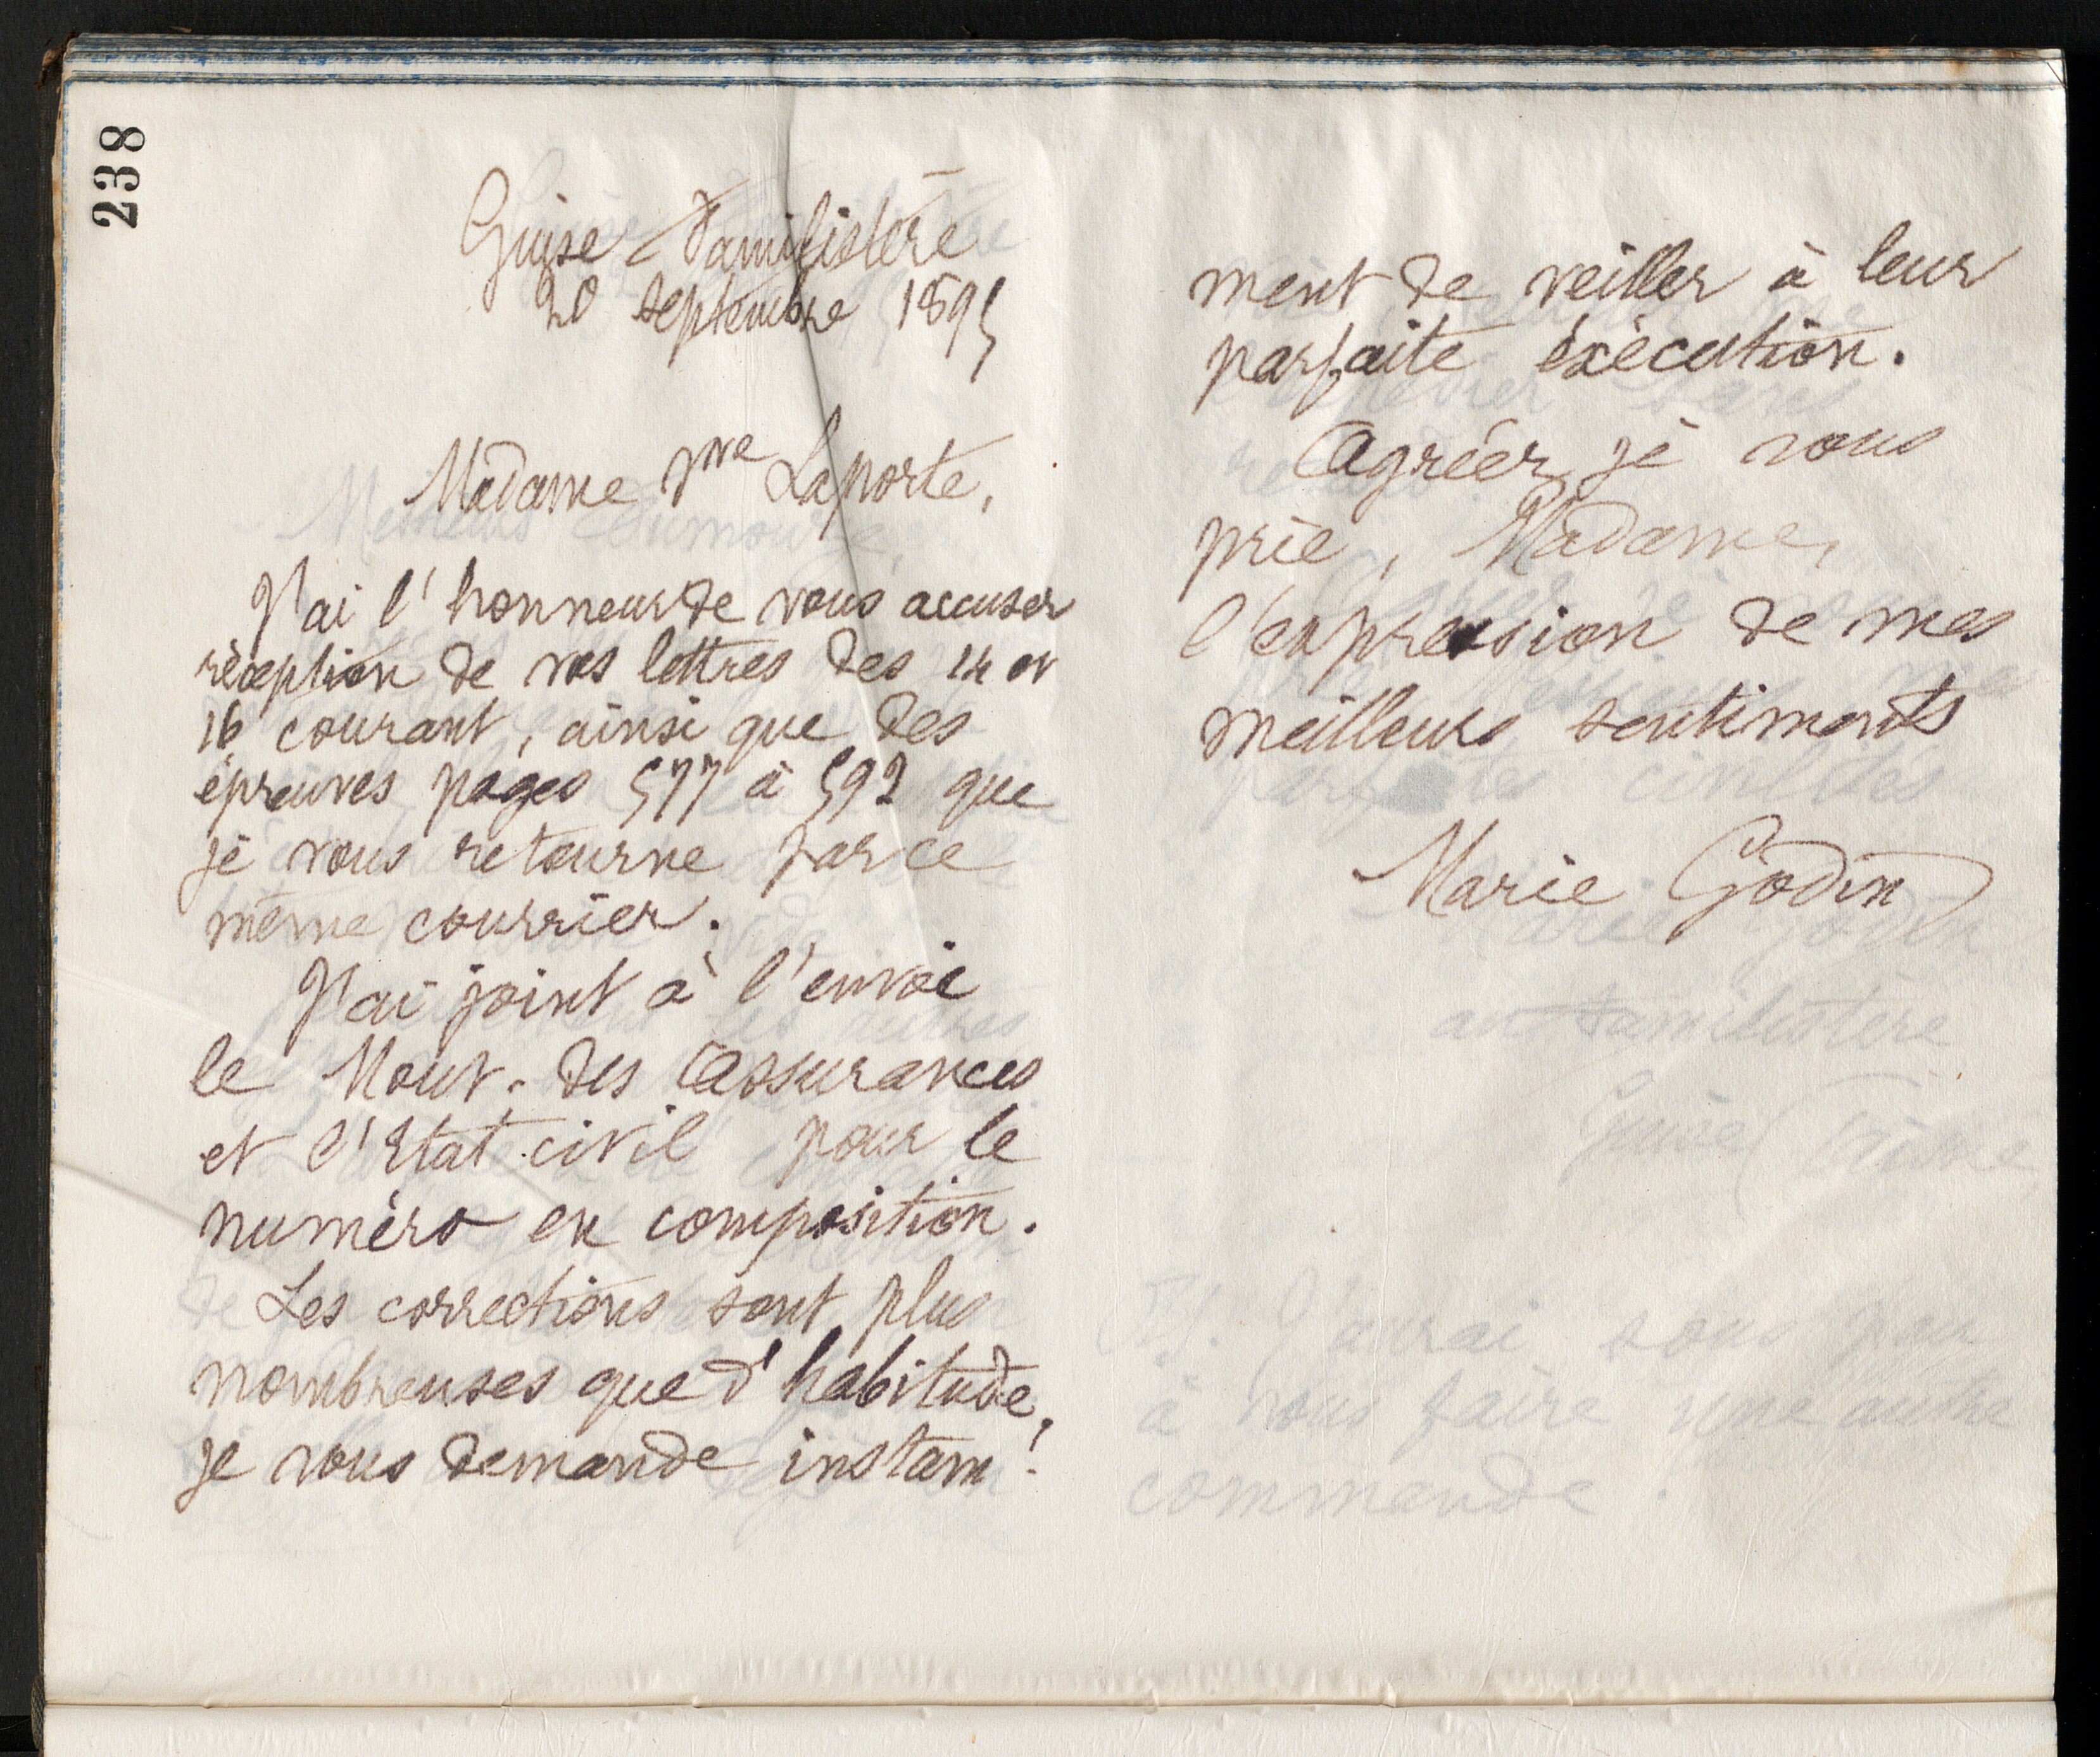 238
Guise Familistère
20 septembre 1895
Madame Vve Laporte,
J'ai l'honneur de vous accuser
réception de vos lettres des 14 et
16 courant, ainsi que des
épreuves pages 577 à 592 que
je vous retourne par ce
même courrier.
J'ai joint à l'envoi
le Mouv. des assurances
et l'Etat civil pour le
numéro en composition.
Les corrections sont plus
nombreuses que d'habitude,
je vous demande instam-
ment de veiller à leur
parfaite exécution.
Agréer, je vous
prie, Madame,
l'expression de mes
meilleurs sentiments
Marie Godin